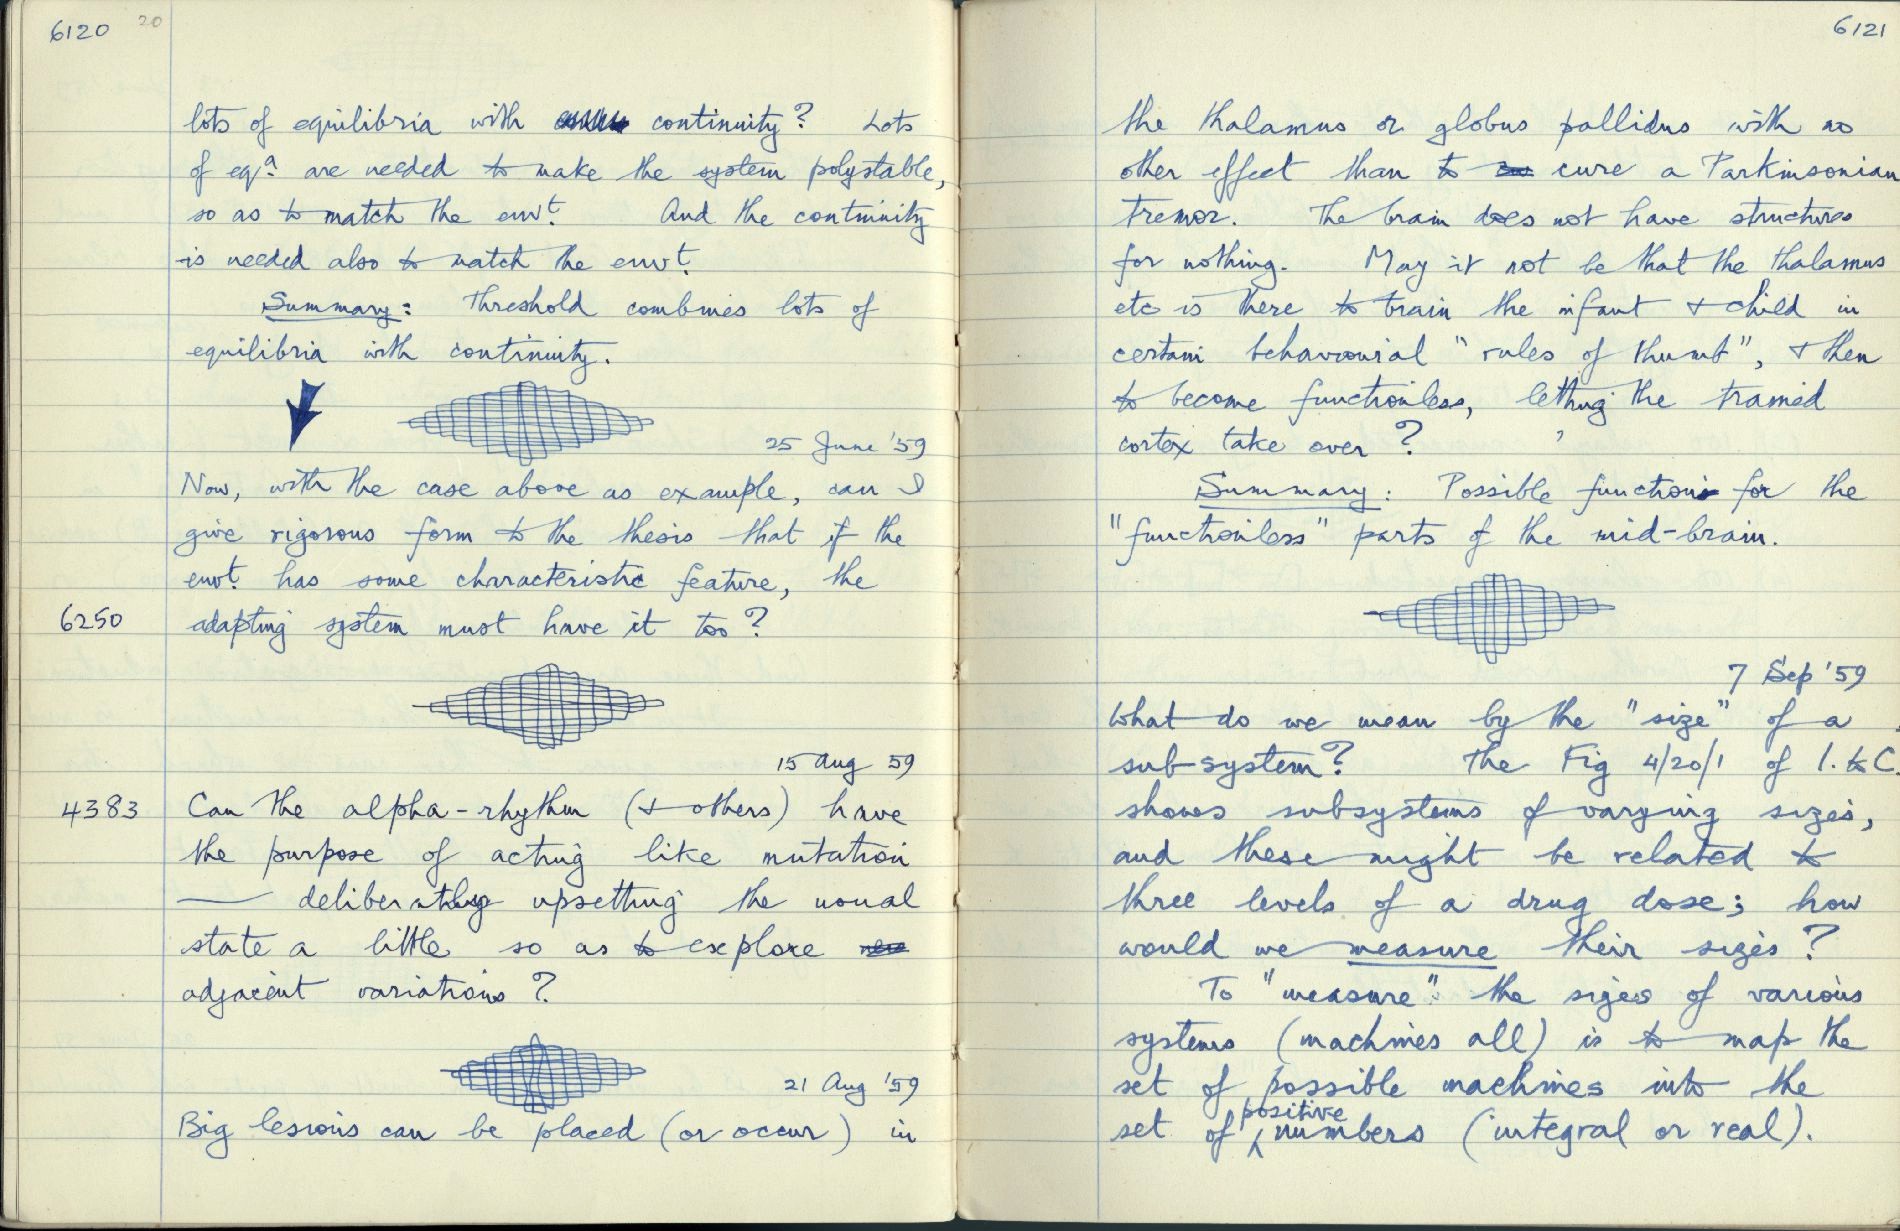 6120 20
lots of equilibria with continuity? Lots
of eqa are needed to make the system polystable,
so as to match the envt. And the continuity
is needed also to match the envt.
Summary: Threshold combines lots of
equilibria with continuity.
25 June '59
Now, with the case above as example, can I
give rigorous form to the thesis that if the
envt. has some characteristic feature, the
6250 adapting system must have it too?
15 Aug 59
4383 Can the alpha-rhythm (& others) have
the purpose of acting like mutation
— deliberately upsetting the usual
state a little so as to explore new
adjacent variations?
21 Aug '59
Big lesions can be placed (or occur) in
6121
the thalamus or globus pallidus with no
other effect than to cure a Parkinsonian
tremor. The brain does not have structures
for nothing. May it not be that the thalamus
etc is there to train the infant & child in
certain behavioural "rules of thumb", & then
to become functionless, letting the trained
cortex take over?
Summary: Possible function for the
"functionless" parts of the mid-brain.
7 Sep '59
What do we mean by the "size" of a
sub-system? The Fig 4/20/1 of I. to C.
shows subsystems of varying sizes,
and these might be related to
three levels of a drug dose; how
would we measure their sizes?
To "measure" the sizes of various
systems (machines all) is to map the
set of possible machines into the
set of positive numbers (integral or real).